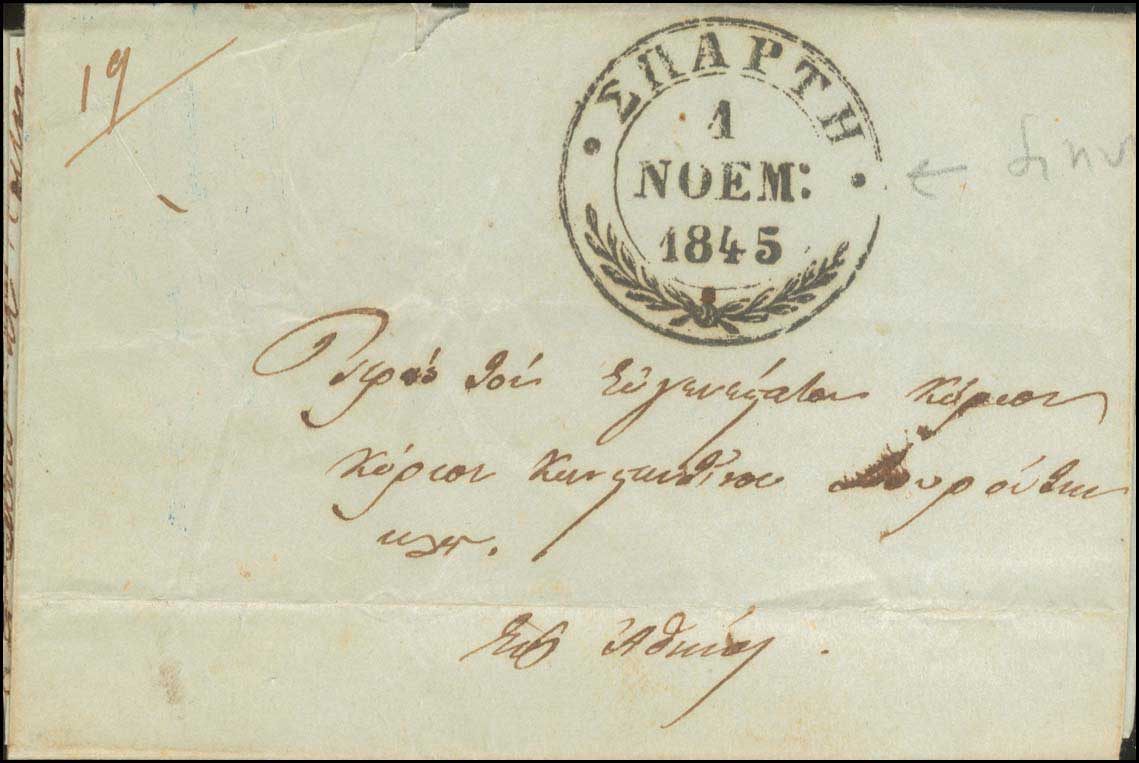 19
ΣΠΑΡΤΗ
1
ΝΟΕΜ:
1845
Πρὸς τὸν Εὐγενέστατον Κύριον
Κύριον Κωνσταντῖνον
κλπ.
Εἰς Ἀθήνας.